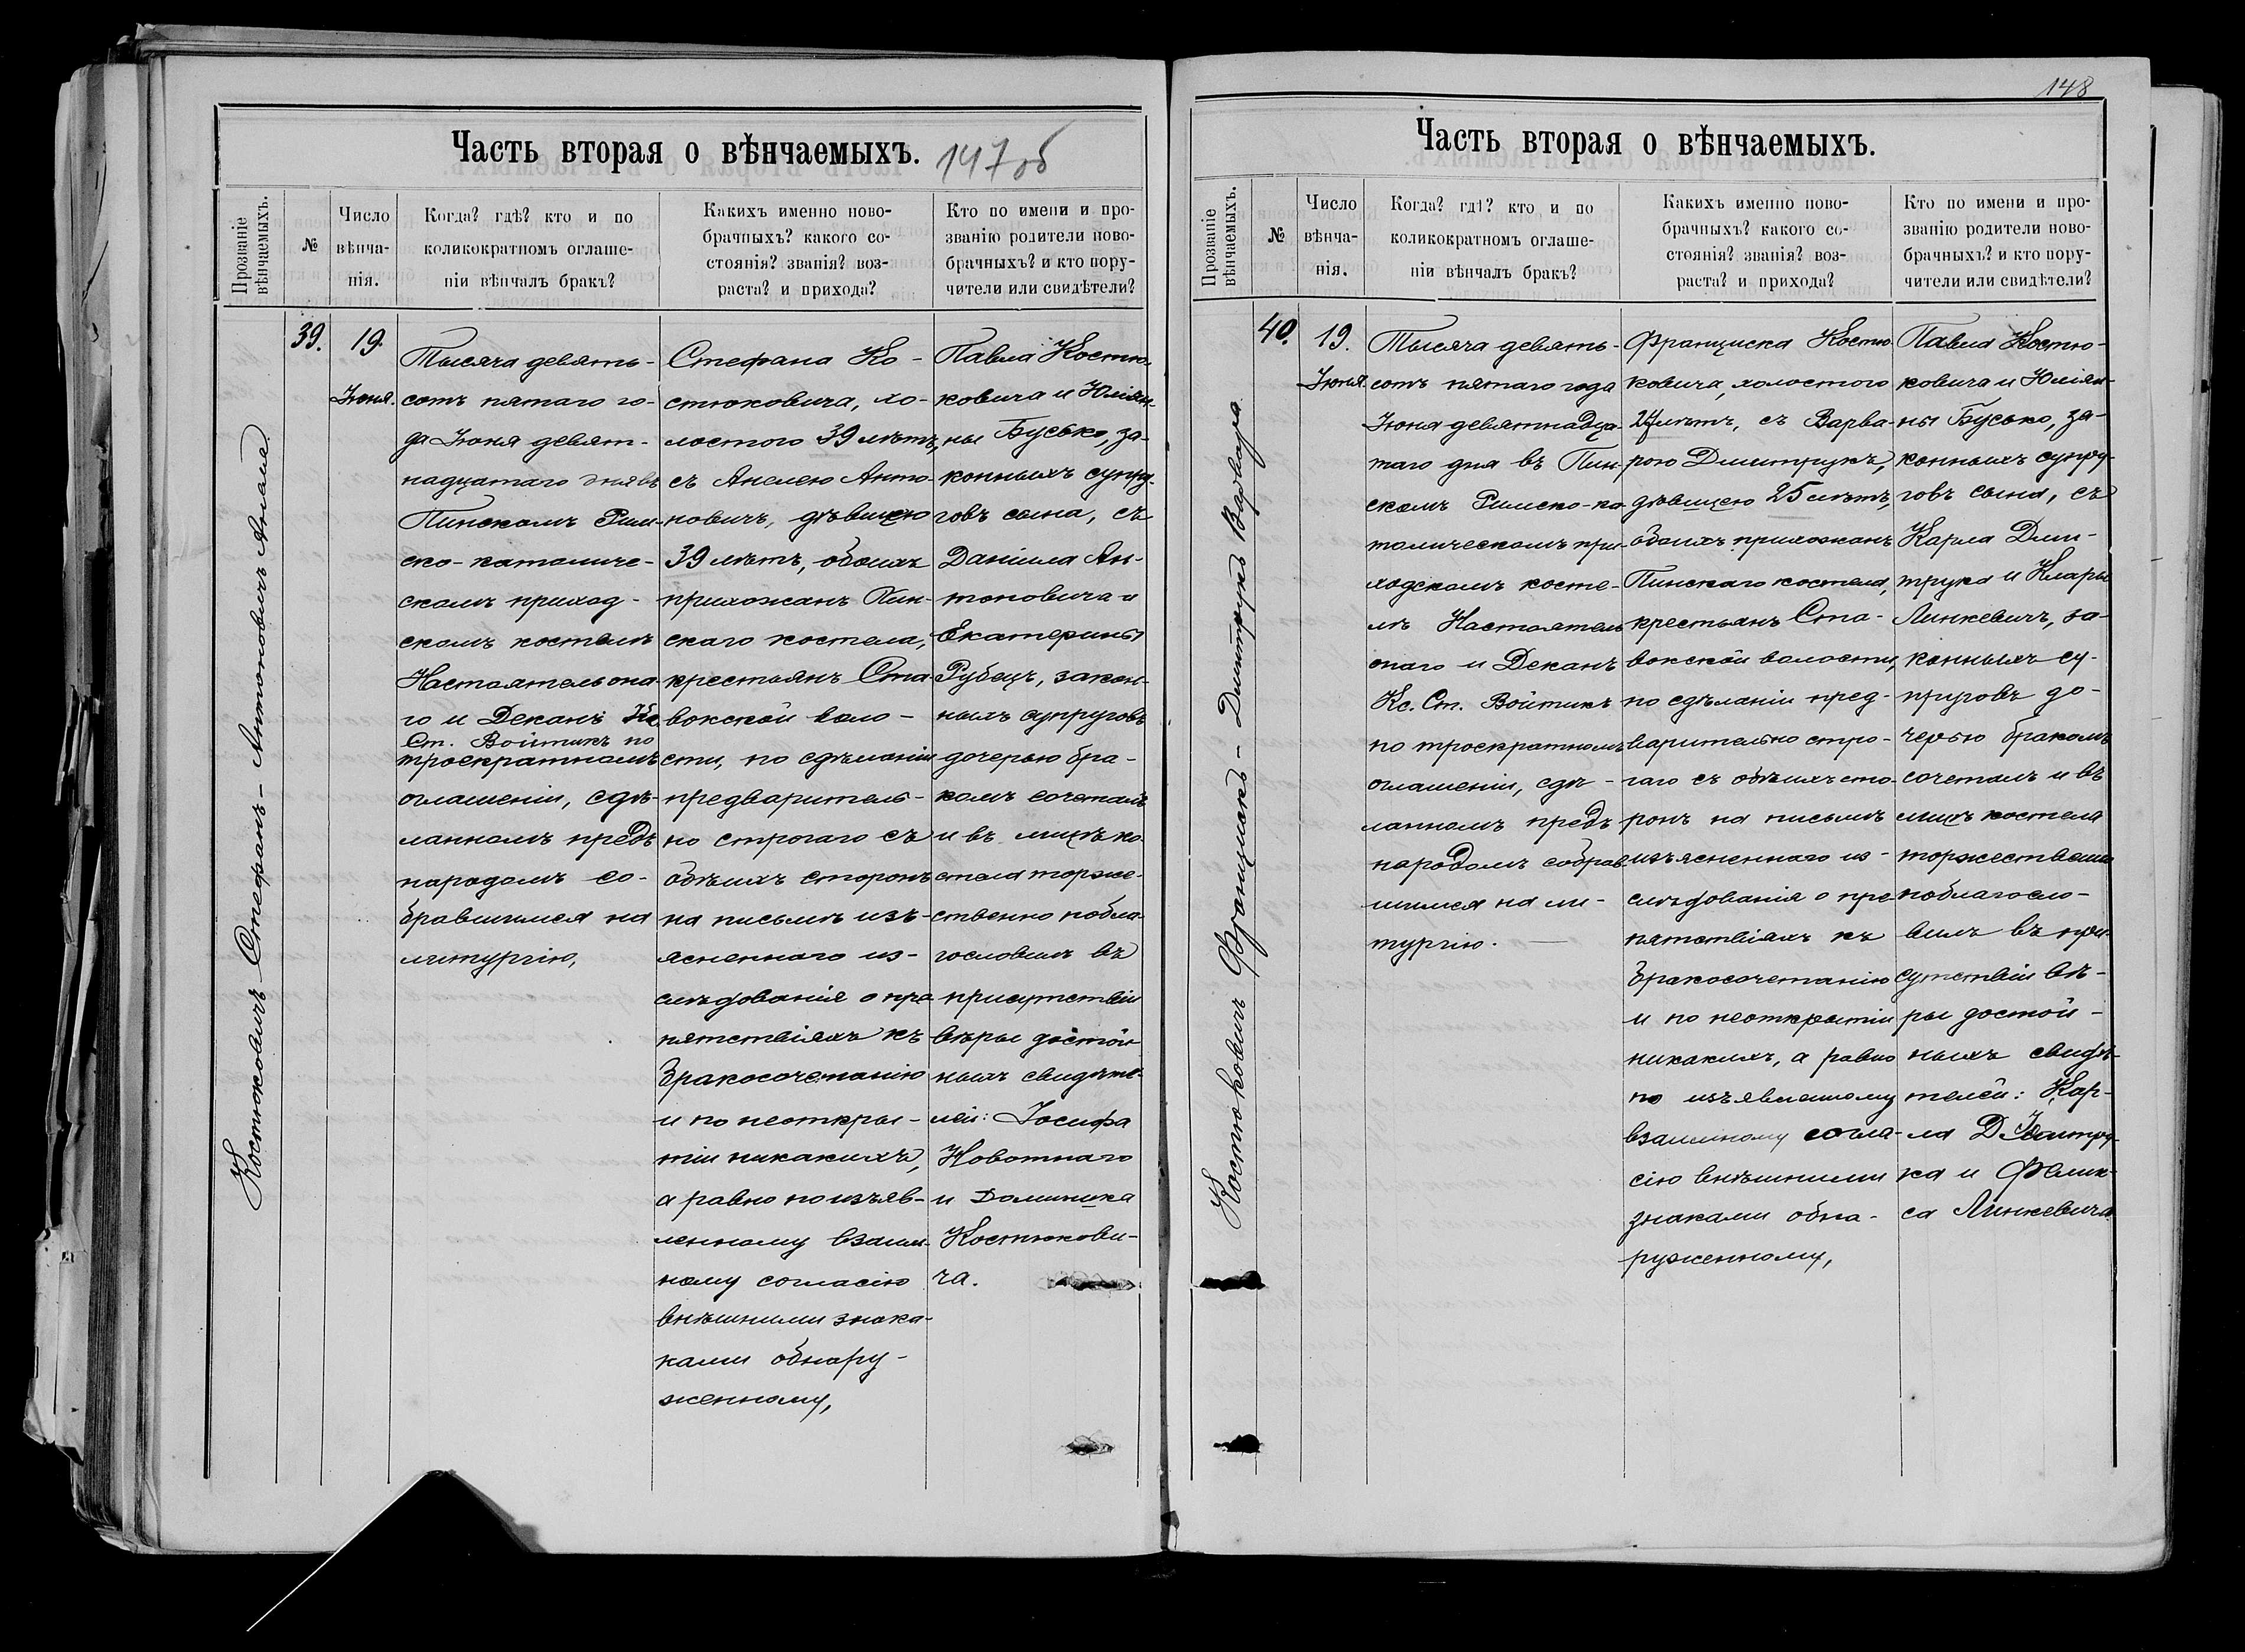 Часть вторая о вѣнчаемыхъ.
147 об
Прозваніе
вѣнчаемыхъ.
№
Число
вѣнча-
нія.
Когда? гдѣ? кто и по
коликократномъ оглаше-
ніи вѣнчалъ бракъ?
Какихъ именно ново-
брачныхъ? какого со-
стоянія? званія? воз-
раста? и прихода?
Кто по имени и про-
званію родители ново-
брачныхъ? и кто пору-
чители или свидѣтели?
Костюковичъ Стефанъ – Антоновичъ Анеля
39.
19.
Іюня.
Тысяча девять-
сотъ пятаго го-
да Іюня девят-
надцатаго дня въ
Пинскомъ Рим-
ско-католиче-
скомъ приход-
скомъ костелѣ
Настоятель она-
го и Деканъ Кс.
Ст. Войтикъ по
троекратномъ
оглашеніи, сдѣ-
ланномъ предъ
народомъ со-
бравшимся на
литургію,
Стефана Ко-
стюковича, хо-
лостого 39 лѣтъ,
съ Анелею Анто-
новичъ, дѣвицею
39 лѣтъ, обоихъ
прихожанъ Пин-
скаго костела,
крестьянъ Ста-
вокской воло-
сти, по сдѣланіи
предваритель-
но строгаго съ
обѣихъ сторонъ
на письмѣ изъ-
ясненнаго из-
слѣдованія о пре-
пятствіяхъ къ
бракосочетанію
и по неоткры-
тіи никакихъ,
а равно по изъяв-
ленному взаим-
ному согласію
внѣшними знака-
ками обнару-
женному,
Павла Костю-
ковича и Юліян-
ны Бусько, за-
конныхъ супру-
говъ сына, съ
Даніила Ан-
тоновича и
Екатерины
Рубецъ, закон-
ныхъ супруговъ
дочерью бра-
комъ сочеталъ
и въ лицѣ ко-
стела торже-
ственно побла-
гословилъ въ
присутствіи
вѣры достой-
ныхъ свидѣте-
лей: Іосифа
Новотнаго
и Доминика
Костюкови-
ча.
148
Часть вторая о вѣнчаемыхъ.
Прозваніе
вѣнчаемыхъ.
№
Число
вѣнча-
нія.
Когда? гдѣ? кто и по
коликократномъ оглаше-
ніи вѣнчалъ бракъ?
Какихъ именно ново-
брачныхъ? какого со-
стоянія? званія? воз-
раста? и прихода?
Кто по имени и про-
званію родители ново-
брачныхъ? и кто пору-
чители или свидѣтели?
Костюковичъ Францискъ – Дмитрукъ Варвара
40.
19.
Іюня.
Тысяча девять-
сотъ пятаго года
Іюня девятнадца-
таго дня въ Пин-
скомъ Римско-ка-
толическомъ при-
ходскомъ косте-
лѣ Настоятель
онаго и Деканъ
Кс. Ст. Войтикъ
по троекратномъ
оглашеніи, сдѣ-
ланномъ предъ
народомъ собрав-
шимся на ли-
тургію.
Франциска Костю-
ковича, холостого
лѣтъ, съ Варва-
рою Дмитрукъ,
дѣвицею 25 лѣтъ,
обоихъ прихожанъ
Пинскаго костела,
крестьянъ Ста-
вокской волости,
по сдѣланіи пред-
варительно стро-
гаго съ обѣихъ сто-
ронъ на письмѣ
изъясненнаго из-
слѣдованія о пре-
пятствіяхъ къ
бракосочетанію
и по неоткрытіи
никакихъ, а равно
по изъявленному
взаимному согла-
сію внѣшними
знаками обна-
руженному,
Павла Костю-
ковича и Юліян-
ны Бусько, за-
конныхъ супру-
говъ сына, съ
Карла Дми-
трука и Клары
Линкевичъ, за-
конныхъ су-
пруговъ до-
черью бракомъ
сочеталъ и въ
лицѣ костела
торжественно
поблагосло-
вилъ въ при-
сутствіи вѣ-
ры достой-
ныхъ свидѣ-
телей: Кар-
ла
ка и Фелик-
са Линкевича